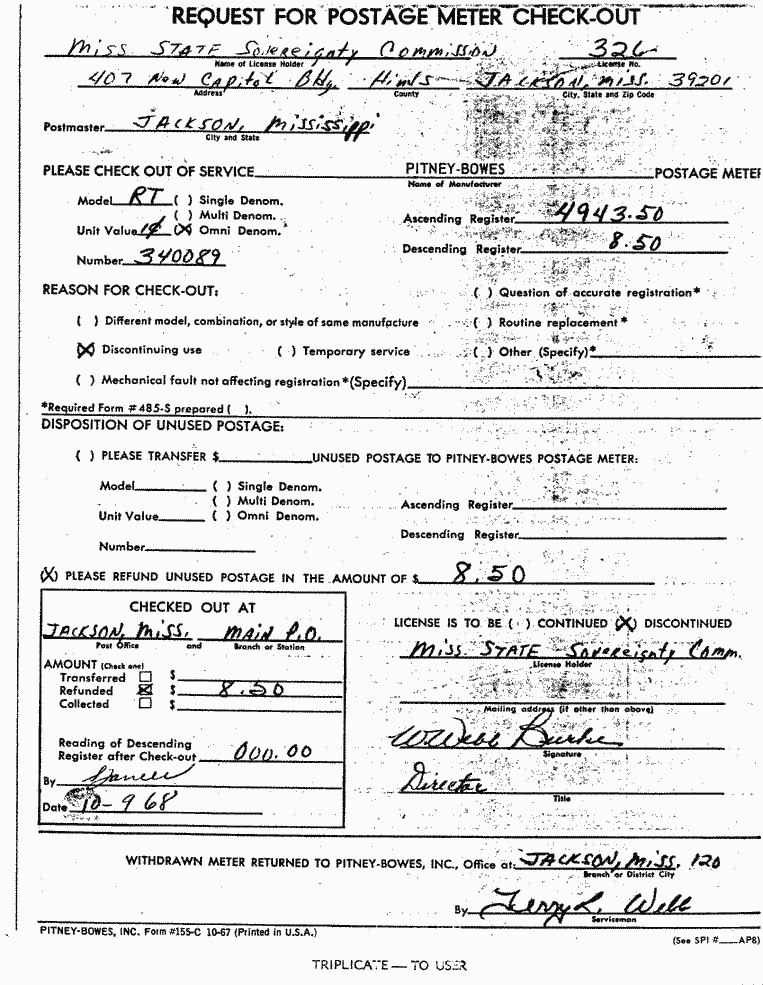 REQUEST FOR POSTAGE METER CHECK-OUT
Miss STATE Sovereignty Commission 326
Name of License Holder License No.
407 New Capitol Bldg. Hinds JACKSON, Miss. 39201
Address County City, State and Zip Code
Postmaster JACKSON, Mississippi
City and State
PLEASE CHECK OUT OF SERVICE PITNEY-BOWES POSTAGE METER
Name of Manufacturer
Model RT ( ) Single Denom.
( ) Multi Denom.
Unit Value 1¢ (X) Omni Denom.
Ascending Register 4943.50
Descending Register 8.50
Number 340089
REASON FOR CHECK-OUT: ( ) Question of accurate registration*
( ) Different model, combination, or style of same manufacture ( ) Routine replacement*
(X) Discontinuing use ( ) Temporary service ( ) Other (Specify)*
( ) Mechanical fault not affecting registration*(Specify)
*Required Form #485-S prepared ( ).
DISPOSITION OF UNUSED POSTAGE:
( ) PLEASE TRANSFER $ UNUSED POSTAGE TO PITNEY-BOWES POSTAGE METER:
Model ( ) Single Denom.
( ) Multi Denom.
Unit Value ( ) Omni Denom.
Ascending Register
Descending Register
Number
(X) PLEASE REFUND UNUSED POSTAGE IN THE AMOUNT OF $ 8.50
CHECKED OUT AT
JACKSON, Miss. MAIN P.O.
Post Office and Branch or Station
AMOUNT (Check one)
Transferred $
Refunded X $ 8.50
Collected $
Reading of Descending
Register after Check-out 000.00
By
Date 10-9 68
LICENSE IS TO BE ( ) CONTINUED (X) DISCONTINUED
Miss. STATE Sovereignty Comm.
License Holder
Mailing address (if other than above)
W Webb Burke
Signature
Director
Title
WITHDRAWN METER RETURNED TO PITNEY-BOWES, INC., Office at: JACKSON, Miss. 120
Branch or District City
By Terry L. Webb
Serviceman
PITNEY-BOWES, INC. Form #155-C 10-67 (Printed in U.S.A.)
(See SPI # AP8)
TRIPLICATE — TO USER